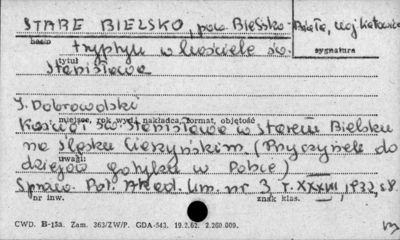 STARE BIELSKO, pow. Bielsko-Biała, woj. Katowice
hasło
sygnatura
tryptyk w kościele św.
tytuł
Stanisława
T. Dobrowolski
miejsce, rok wyd., nakładca, format, objętość
Kościół św. Stanisława w Starem Bielsku
na Śląsku Cieszyńskim. (Przyczynek do
uwagi:
dziejów gotyku w Polsce)
Spraw. Pol. Akad. Um. nr 3 t. XXXVII, 1932, s. 8.
nr inw.
znak klas.
CWD. B-13a. Zam. 363/ZW/P. GDA-543. 19.2.62. 2.260.000.